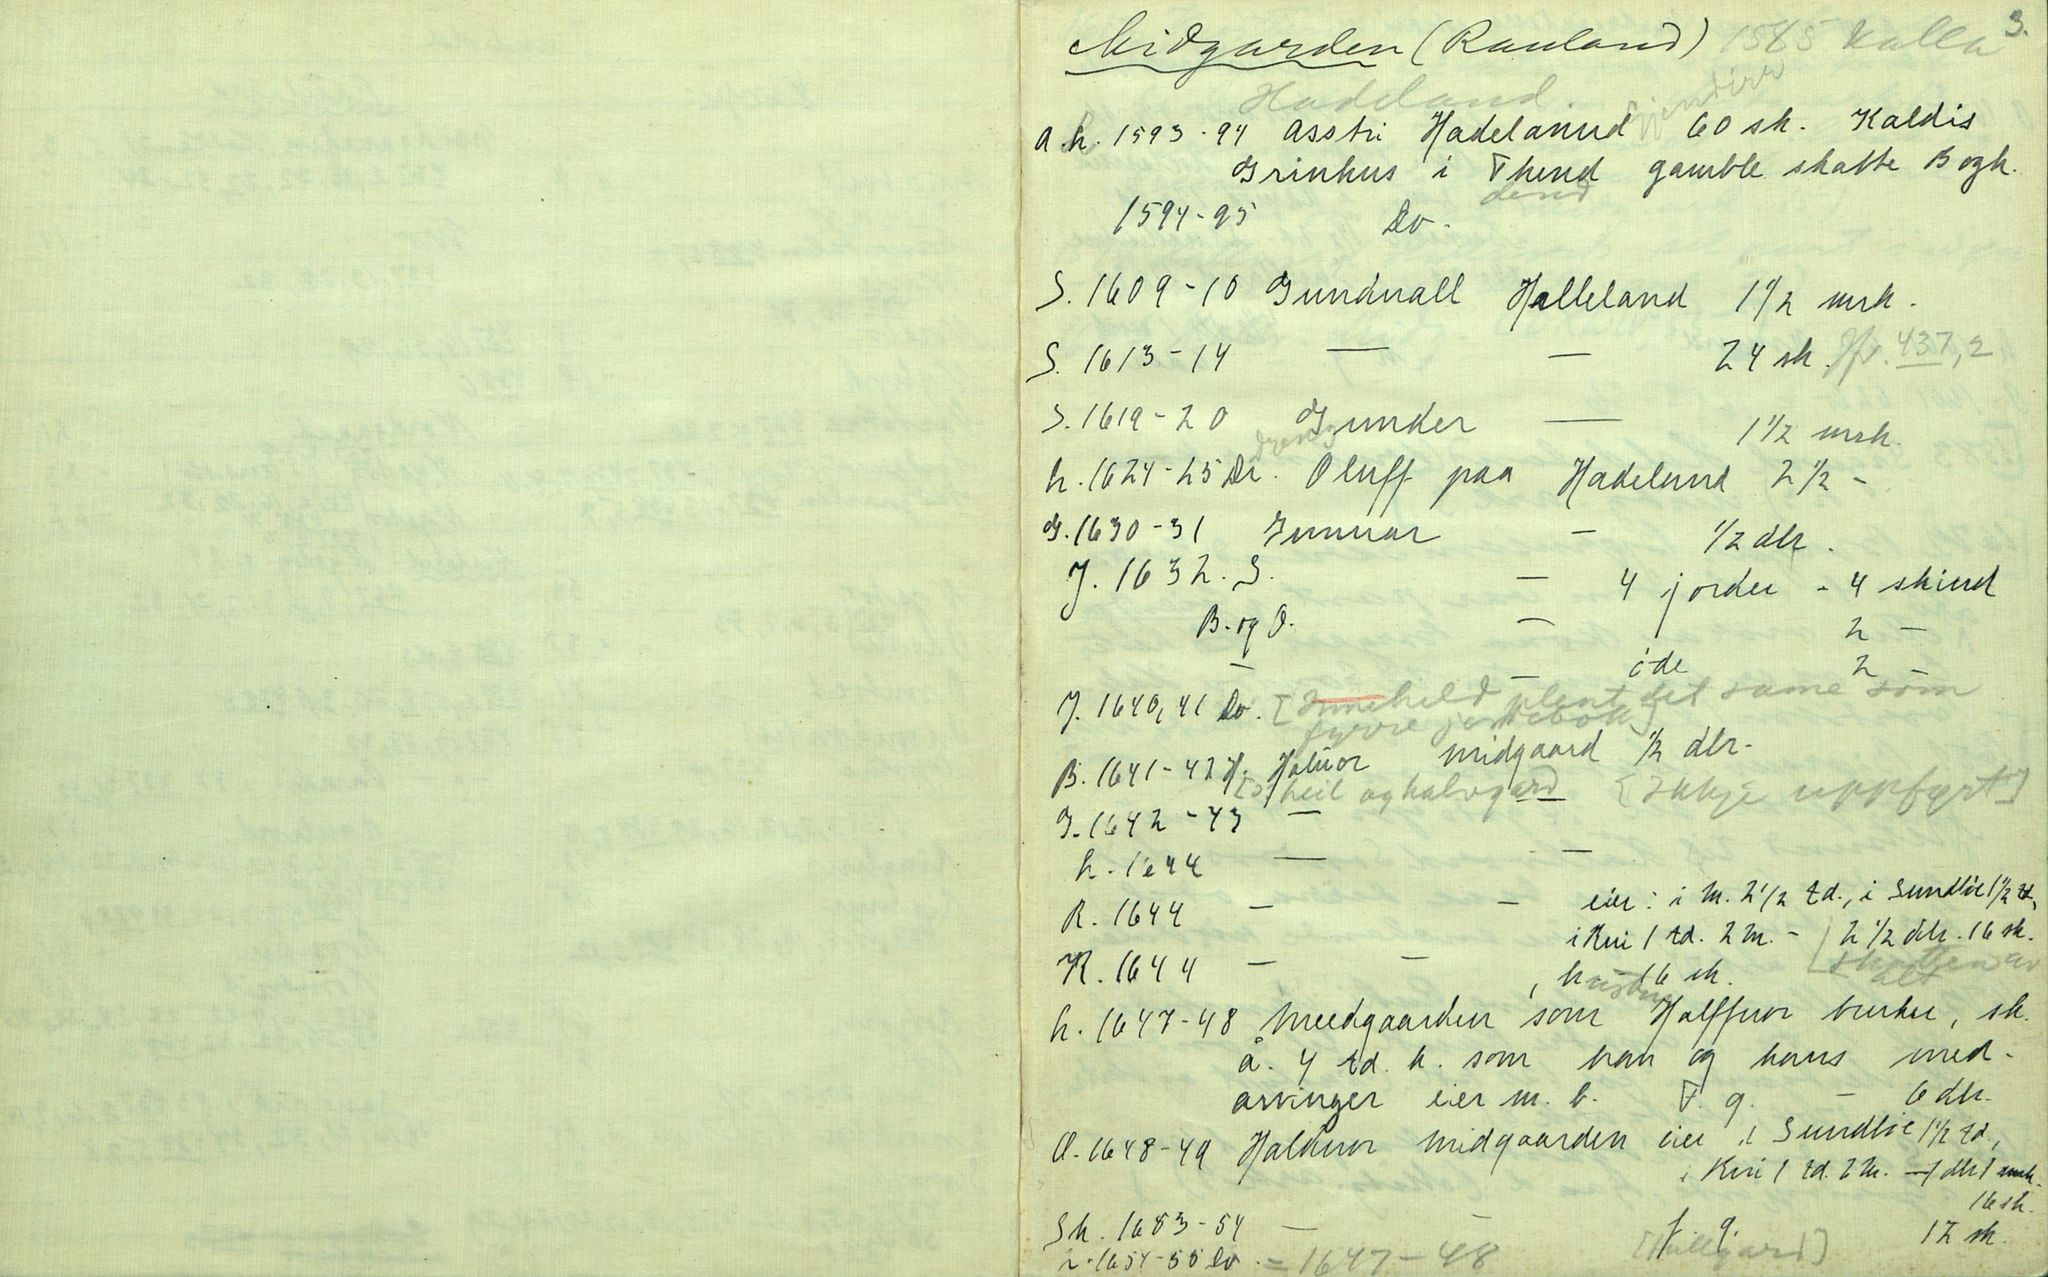 3.
Midgarden (Rauland) 1585 Kalla
Hadeland.
A.h. 1593-94 Asstri Hadelannd 60 sk. Kaldis
Grinhus i Thend gamble skatte Bogh.
dend
1594-95 Do.
S. 1609-10 Gunduall Halleland 1 1/2 mrk.
S. 1613-14 — — 24 sk. Jfr. 437,2
S. 1619-20 Gunder — 1 1/2 mrk.
dreng
h. 1624-25 Dr. Oluff paa Hadelund 2 1/2 -
G. 1630-31 Gunnar — 1/2 dlr.
J. 1632. S. — 4 jorder - 4 skind
B. og O. — 2 —
— — öde 2 —
J. 1640, 41 Do. [Inneheld plent det same som
fyrre jordebok]
B. 1641-42 H. Haluor midgaard 1/2 dlr.
heil og halvgard [Ikkje uppfyrt]
G. 1642-43 —
h. 1644 — —
R. 1644 — — eier: i M. 2 1/2 td., i Sundlie 1 1/2 td,
i Kvi 1 td. 2 m. - 2 1/2 dlr. 16 sk.
[skatten av
alt
K. 1644 — — , h - 16 sk.
h. 1647-48 Meedgaarden som Halffuor bruker, sk.
å. 4 td. h. som han og hans med-
arvinger eier m. b. F. g. - 6 dlr.
O. 1648-49 Haluor Midgaarden eier i Sundlie 1 1/2 td.,
i Kvi 1 td. 2 m. — 1 dlr 1 mrk.
16 sk.
Sk. 1653-54 — — f. g. 12 sk.
h. 1654-55 Do. = 1647-48 [fullgard]